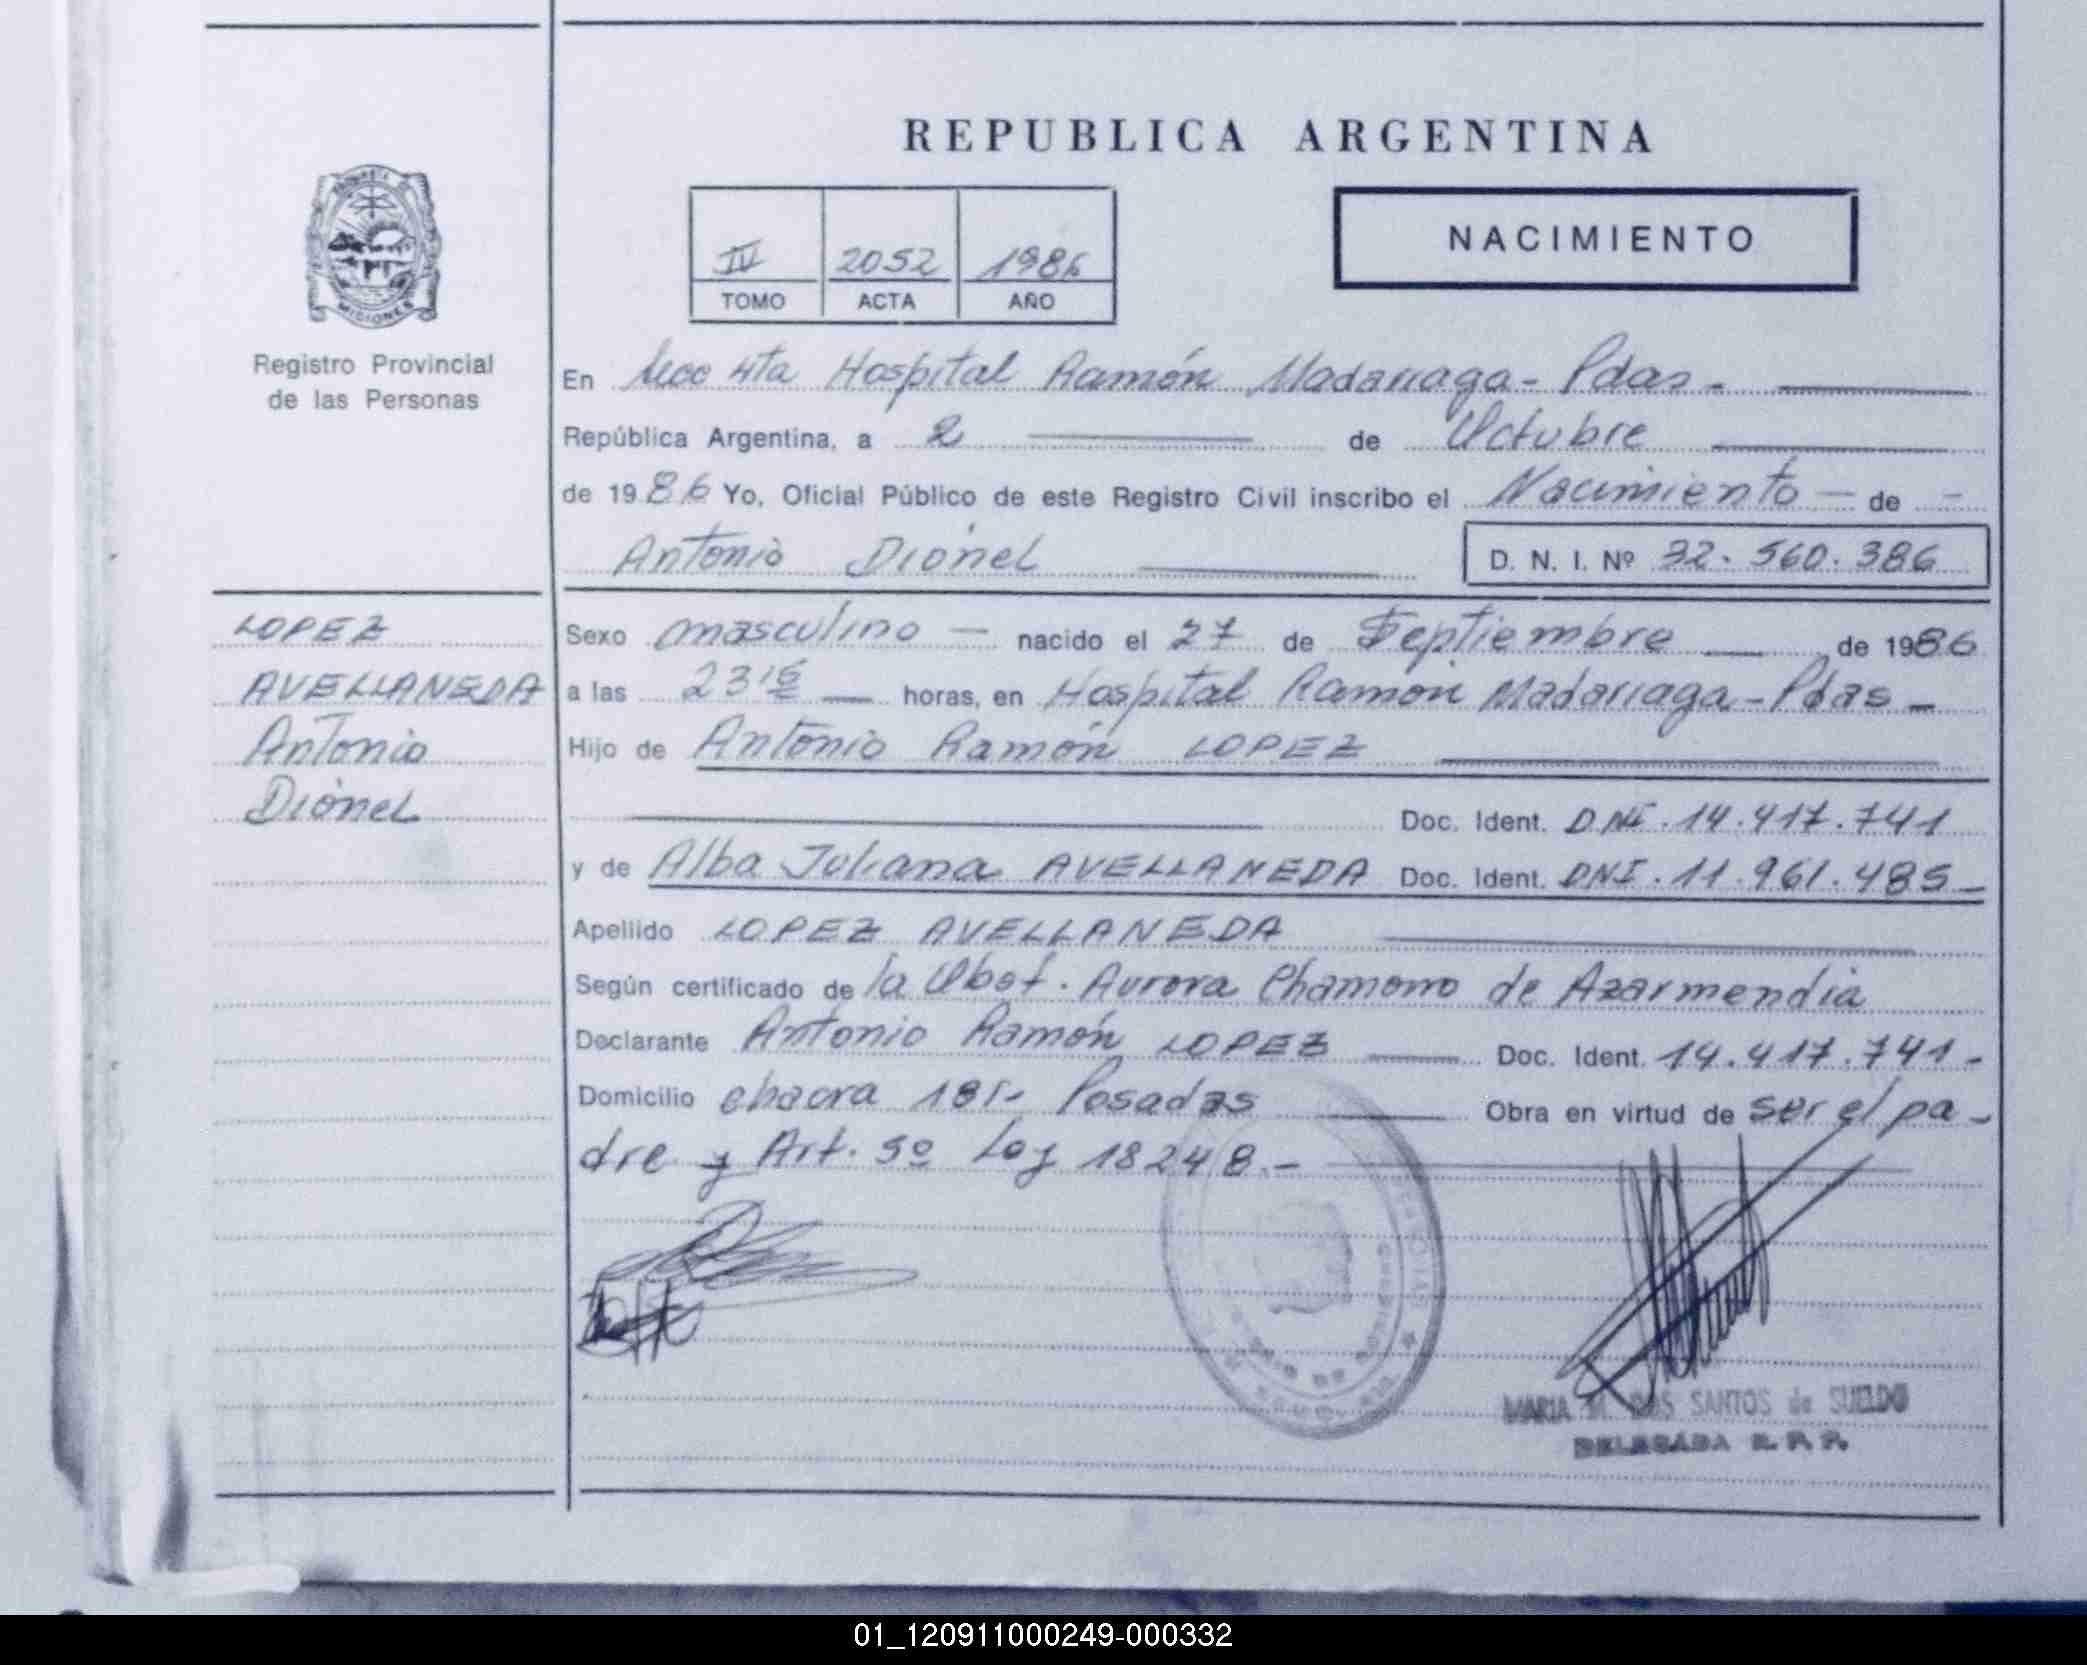 REPUBLICA ARGENTINA
IV 2052 1986
TOMO ACTA AÑO
NACIMIENTO
MISIONES
Registro Provincial
de las Personas
En Secc 4ta Hospital Ramón Madariaga - Pdas -
República Argentina, a 2 de Octubre
de 1986 Yo, Oficial Público de este Registro Civil inscribo el Nacimiento — de -
Antonio Dionel
D. N. I. Nº 32.560.386
LOPEZ
AVELLANEDA
Antonio
Dionel
Sexo masculino — nacido el 27 de Septiembre de 1986
a las 23 15 — horas, en Hospital Ramón Madariaga - Pdas -
Hijo de Antonio Ramón LOPEZ
Doc. Ident. DNI. 14.417.741
y de Alba Juliana AVELLANEDA Doc. Ident. DNI. 11.961.485 -
Apellido LOPEZ AVELLANEDA
Según certificado de la Obst. Aurora Chamorro de Azarmendia
Declarante Antonio Ramón LOPEZ Doc. Ident. 14.417.741 -
Domicilio chacra 181- Posadas Obra en virtud de ser el pa -
dre y Art. 5º Ley 18248.-
MARIA M. DOS SANTOS de SUELDO
DELEGADA R. P. P.
01_120911000249-000332